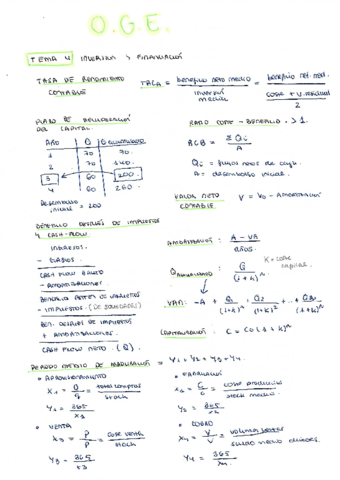 O.G.E.
TEMA 4 INVERSION Y FINANCIACIÓN
TASA DE RENDIMIENTO CONTABLE
TRCA = beneficio neto medio / inversión media = beneficio net. med. / (coste + v. residual) / 2
PLAZO DE RECUPERACIÓN DEL CAPITAL
AÑO Q Q acumulado
1 70 70
2 70 140
3 60 200
4 60 260
Desembolso inicial = 200
RATIO COSTE - BENEFICIO > 1
RCB = ΣQi / A
Qi = flujos netos de caja
A = desembolso inicial
VALOR NETO CONTABLE V = V0 - AMORTIZACIÓN
BENEFICIO DESPUÉS DE IMPUESTOS Y CASH-FLOW
INGRESOS
- GASTOS
CASH FLOW BRUTO
- AMORTIZACIONES
BENEFICIO ANTES DE IMPUESTOS
- IMPUESTOS (DE SOCIEDADES)
BEN. DESPUÉS DE IMPUESTOS
+ AMORTIZACIONES
CASH FLOW NETO (Q)
AMORTIZACIONES: A - VR / años
K = coste capital
Q / (1+k)^n
VAN: -A + Q1/(1+k)^1 + Q2/(1+k)^2 + ... + Qn/(1+k)^n
CAPITALIZACIÓN: C = C0 (1+k)^n
PERIODO MEDIO DE MADURACIÓN = Y1 + Y2 + Y3 + Y4
• APROVISIONAMIENTO
X1 = total compras / stock
Y1 = 365 / X1
• FABRICACIÓN
X2 = coste producción / stock medio
Y2 = 365 / X2
• VENTA
X3 = coste venta / stock
Y3 = 365 / X3
• COBRO
X4 = volumen ventas / saldo medio clientes
Y4 = 365 / X4